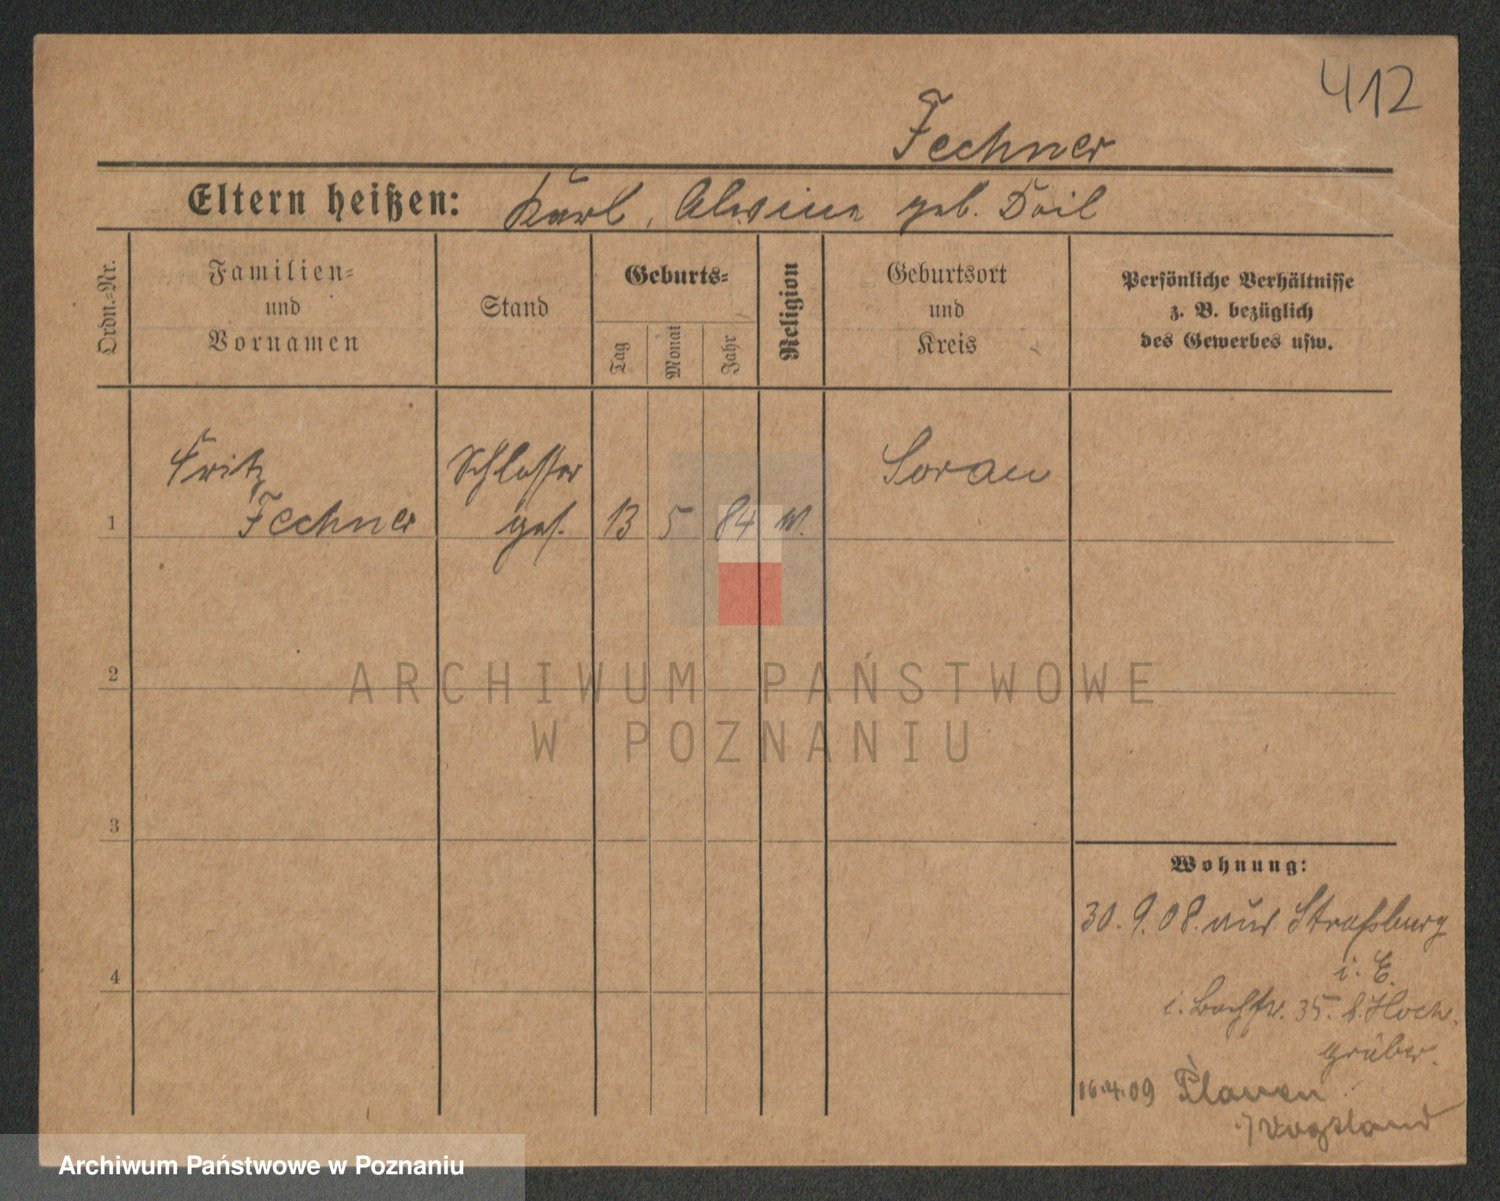 412
Fechner
Eltern heißen: Karl, Alwine geb. Doil
Ordn.=Nr.
Familien=
und
Vornamen
Stand
Geburts=
Tag
Monat
Jahr
Religion
Geburtsort
und
Kreis
Persönliche Verhältnisse
z. B. bezüglich
des Gewerbes usw.
Fritz Schlosser Sorau
1 Fechner ges. 13 5 84
2
3
4
ARCHIWUM PAŃSTWOWE
W POZNANIU
Wohnung:
30. 9. 08. aus Straßburg
i. E.
35. b. Hoch
gräber.
16.4.09 Plauen
i/ Vogtland
Archiwum Państwowe w Poznaniu